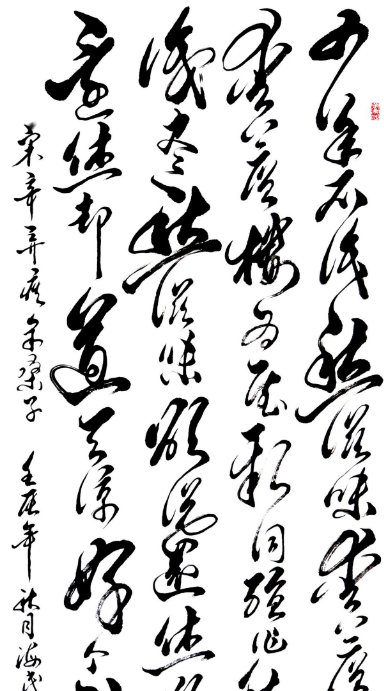 少年不识愁滋味爱上层
爱上层楼为赋新词强说
识尽愁滋味欲说还休
还休却道天凉好个
宋辛弃疾采桑子 壬辰年秋月海